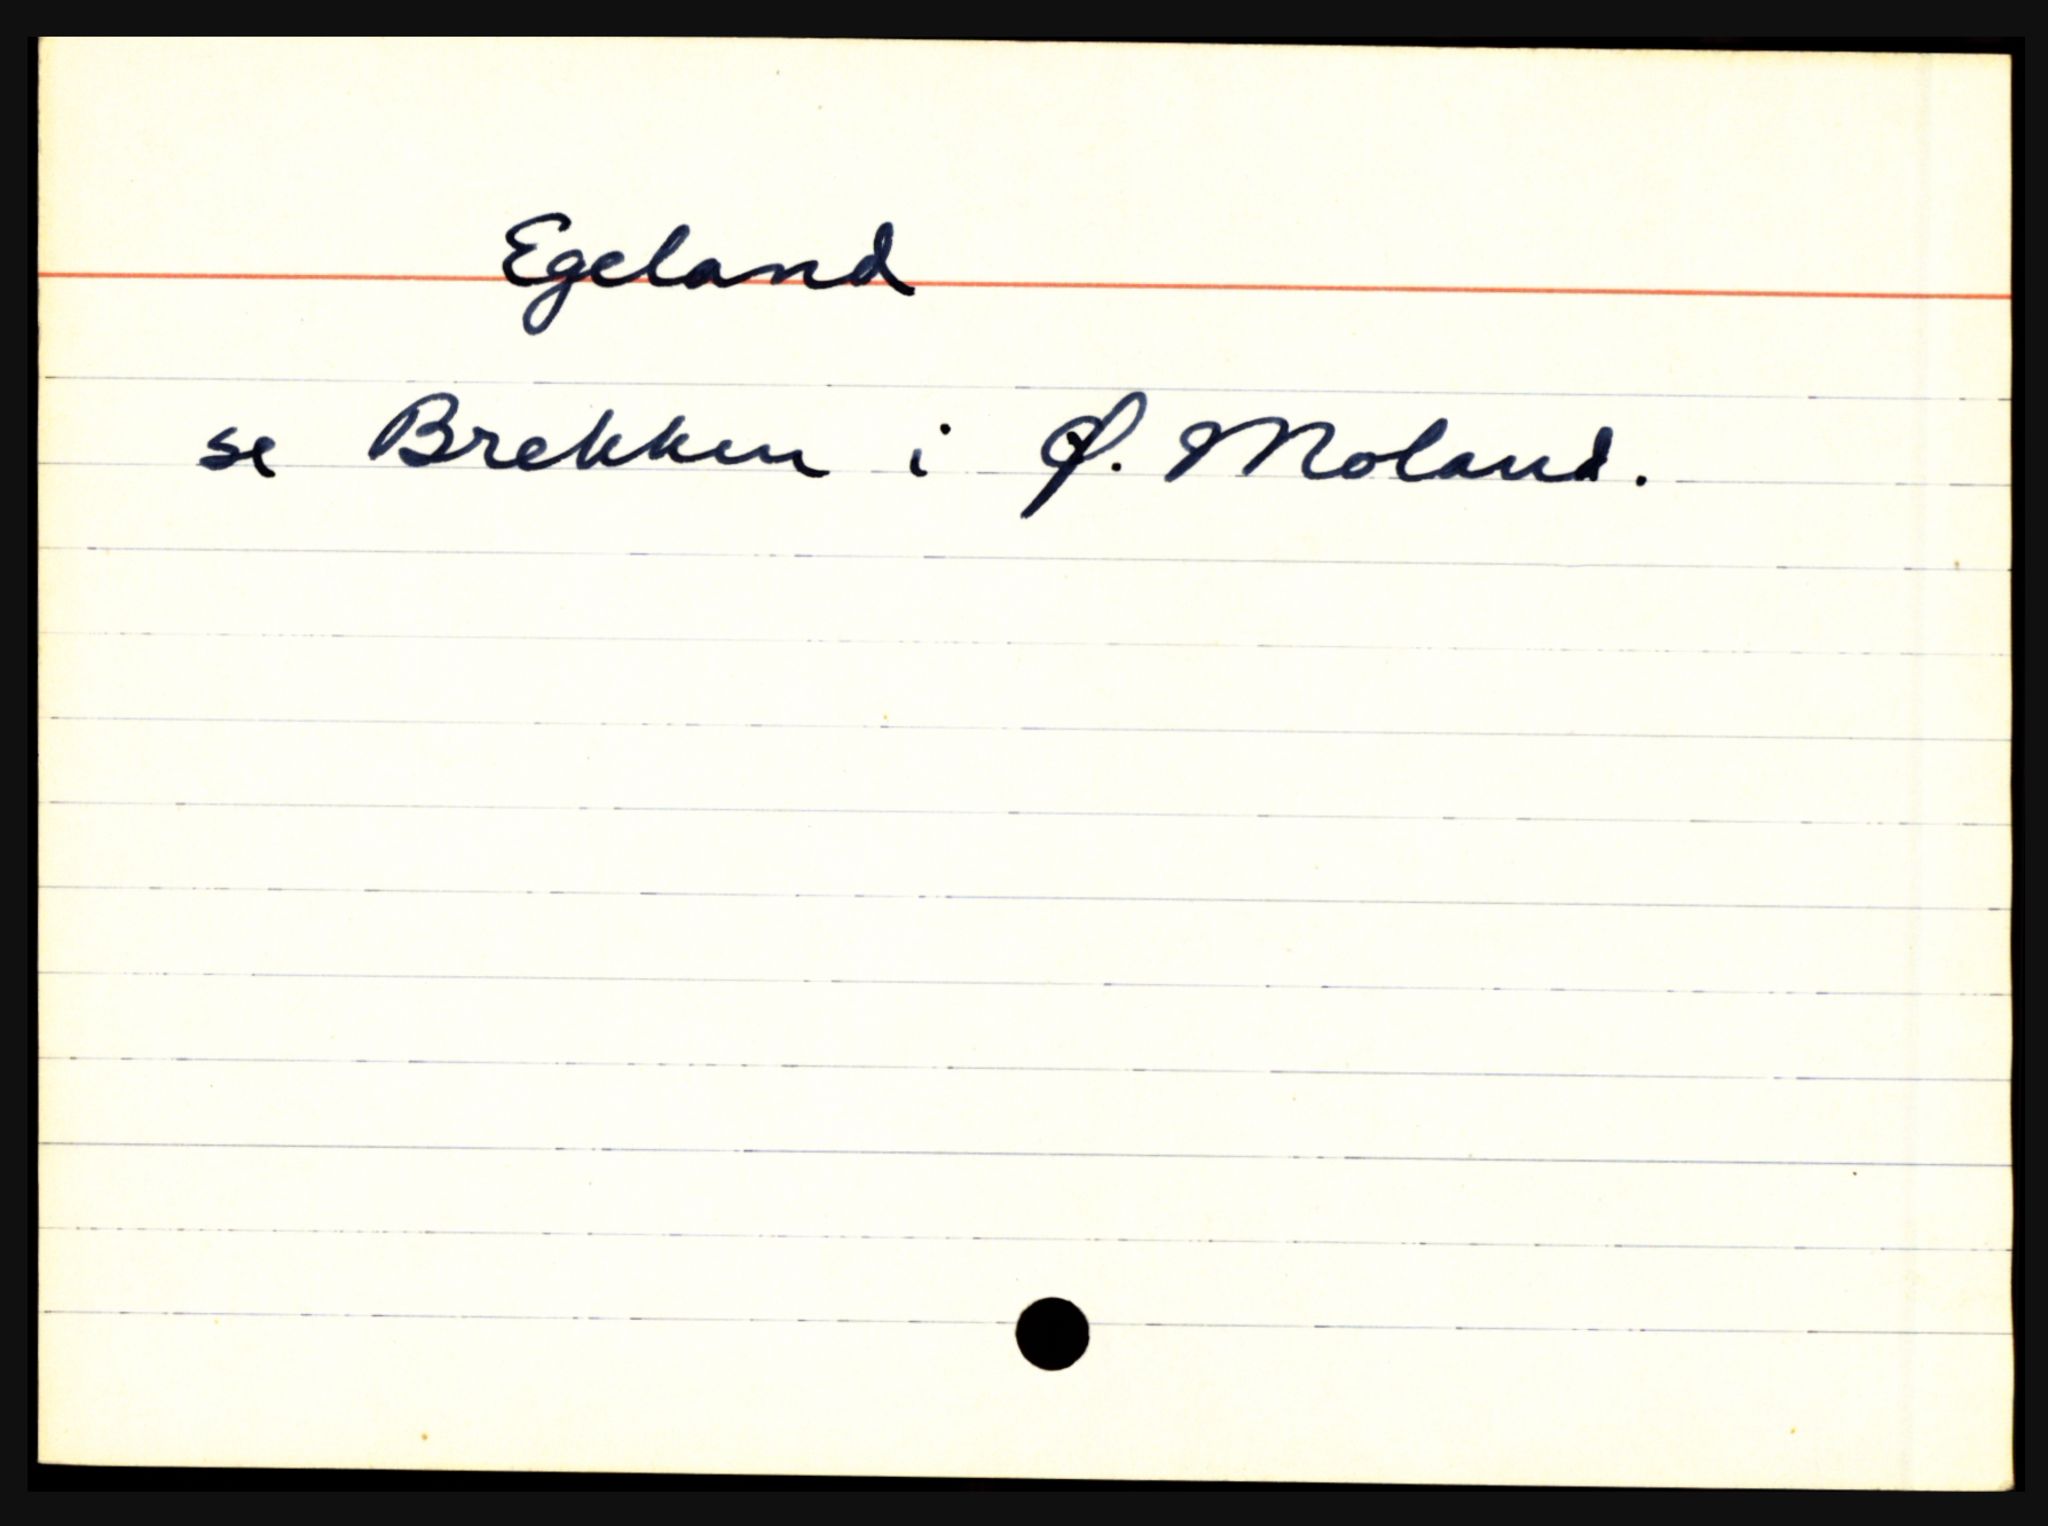 Egeland
se Brekken i Ø. Moland.